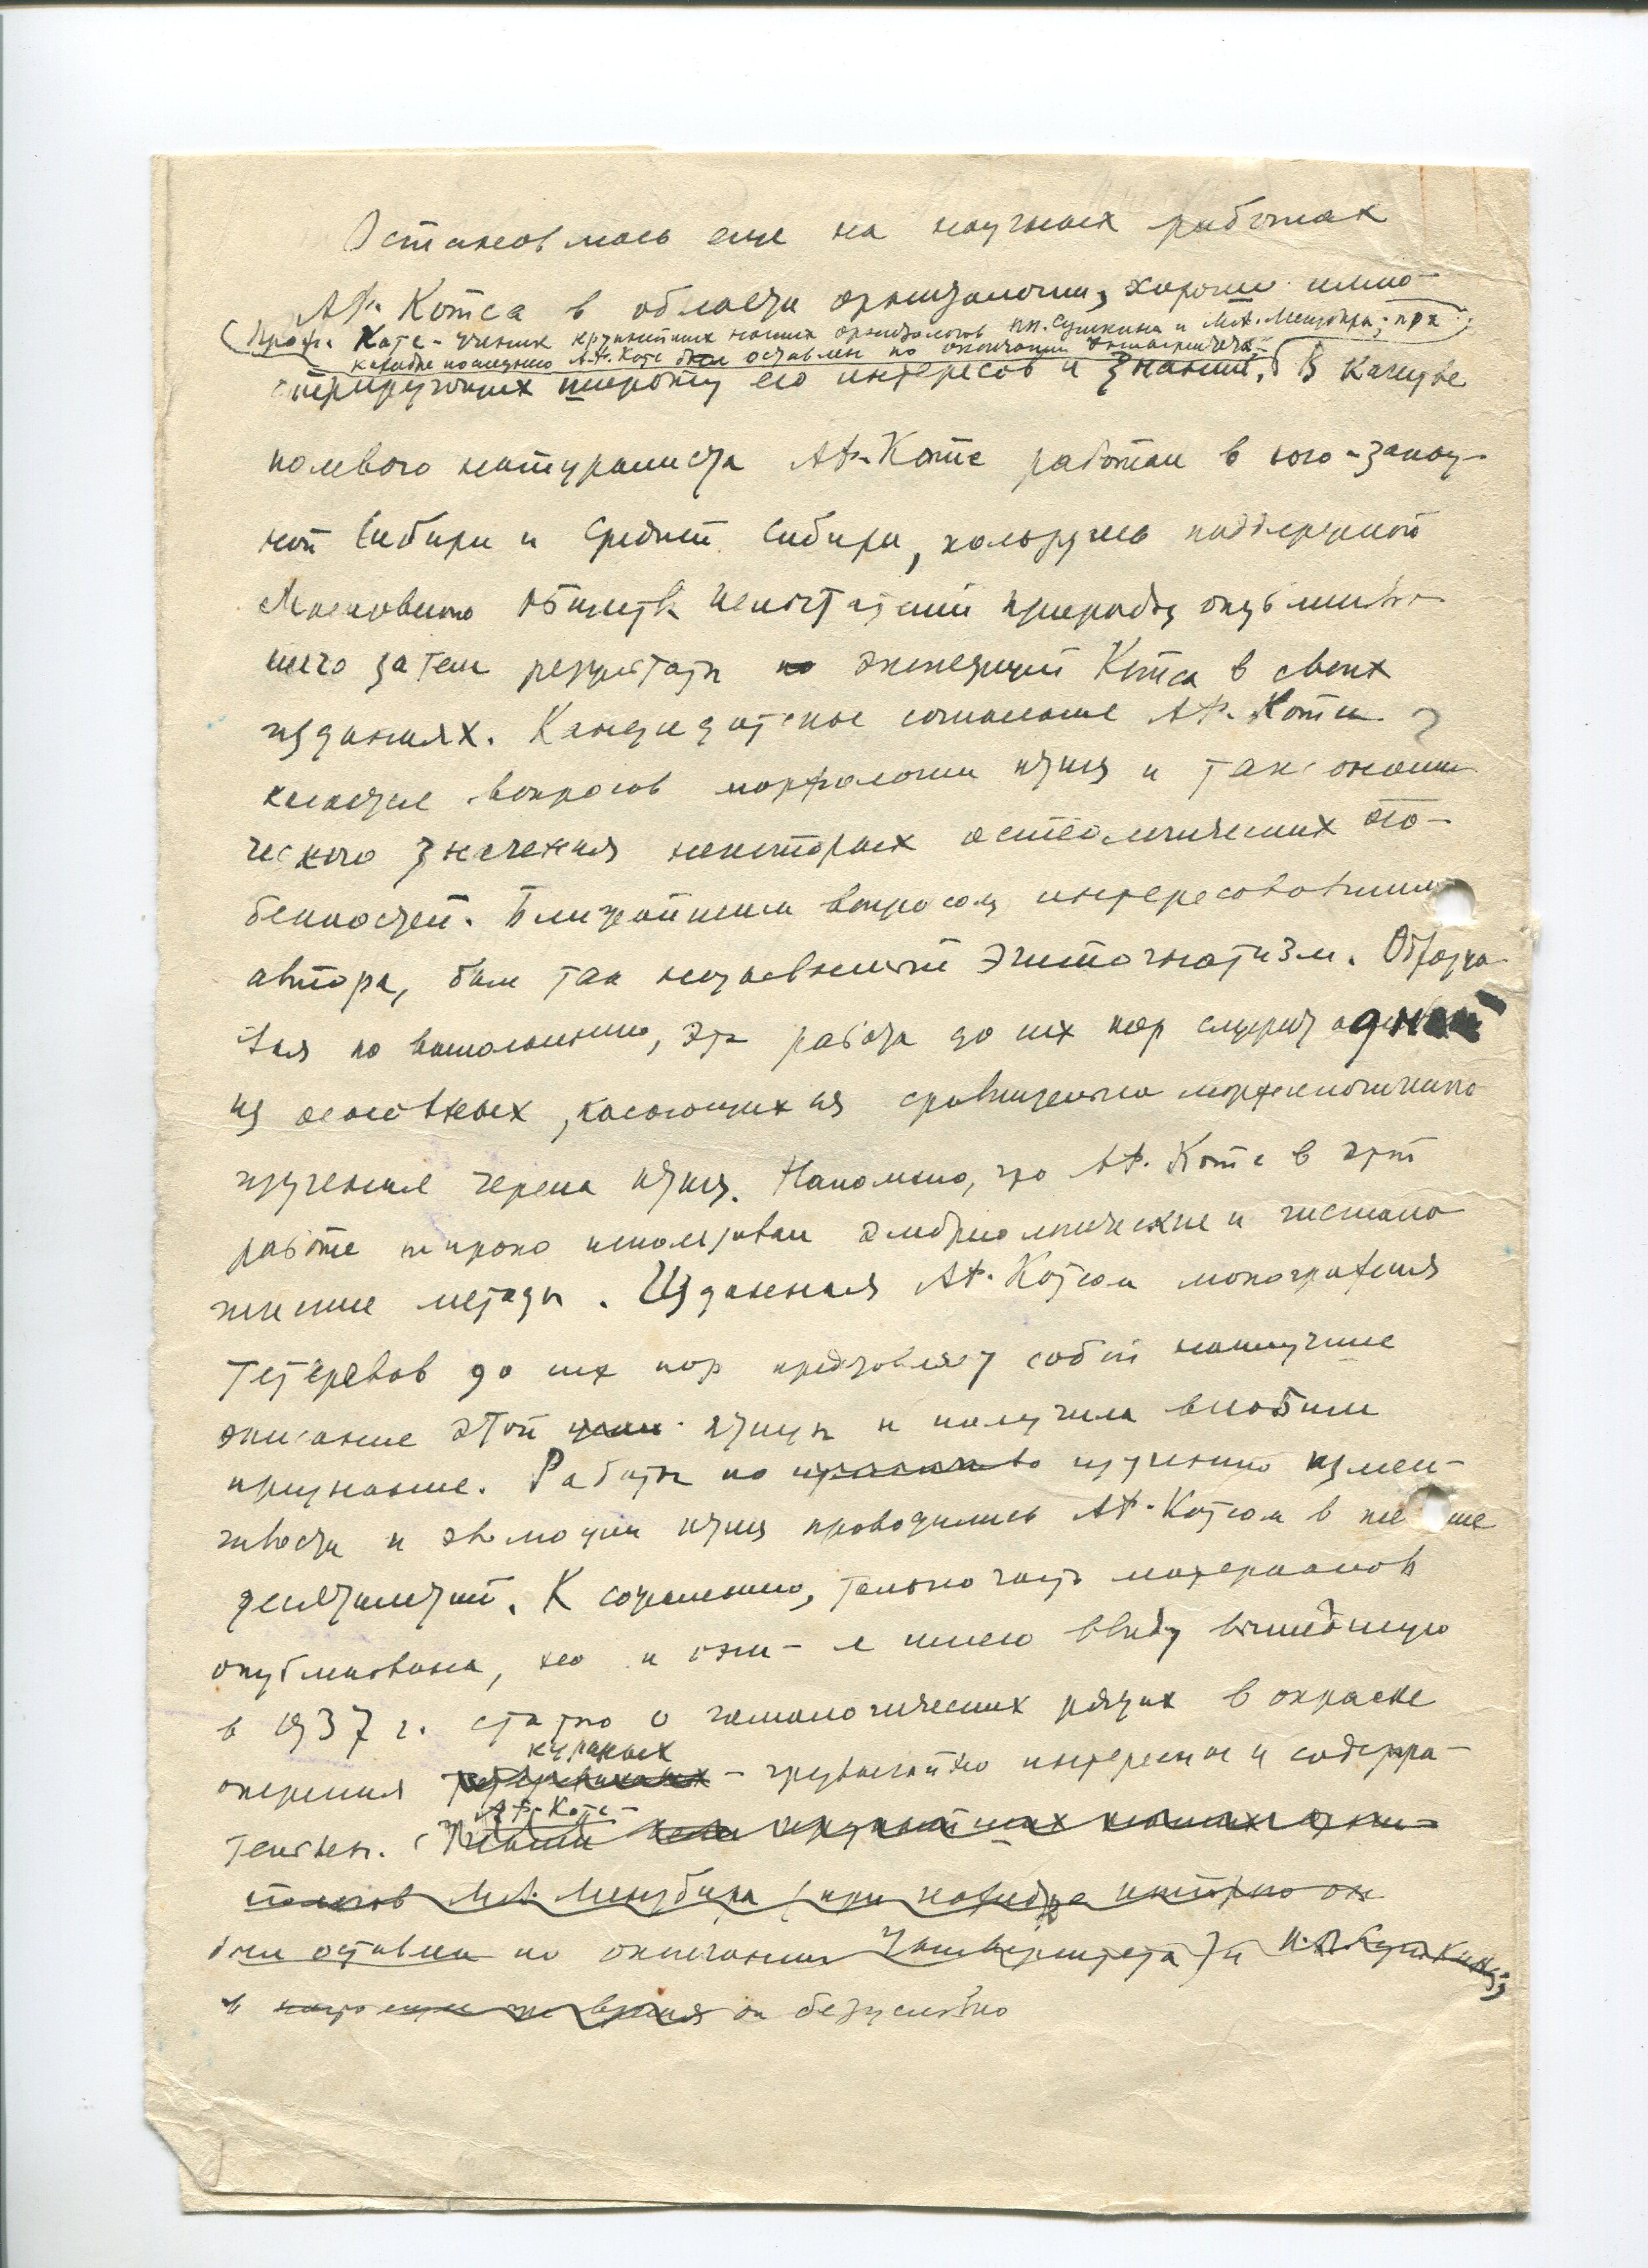 Остановлюсь еще на научных работах
А.Ф. Котса в области орнитологии, хорошо иллю-
(Проф. Котс - ученик крупнейших наших орнитологов П.П. Сушкина и М.А. Мензбира; при
кафедре последнего А.Ф. Котс был оставлен по окончании Университета)
стрирующих широту его интересов и знаний. В качестве
полевого натуралиста А.Ф. Котс работал в юго-запад-
ной Сибири и Средней Сибири, пользуясь поддержкой
Московского Общества Испытателей природы, опубликовав-
шего затем результаты экспедиций Котса в своих
изданиях. Кандидатское сочинение А.Ф. Котса
касается вопросов морфологии птиц и таксономи-
ческого значения некоторых остеологических осо-
бенностей. Ближайшим вопросом, интересовавшим
автора, был так называемый эгитогнатизм. Образцо-
вая по выполнению, эта работа до сих пор служит одной
из основных, касающихся сравнительно морфологического
изучения черепа птиц. Напомню, что А.Ф. Котс в этой
работе широко использовал эмбриологические и гистоло-
гические методы. Изданная А.Ф. Котсом монография
тетеревов до сих пор представляет собой наилучшее
описание этой птицы и получила всеобщее
признание. Работы по изучению измен-
чивости и эволюции птиц проводились А.Ф. Котсом в течение
десятилетий. К сожалению, только часть материалов
опубликована, но и они - я имею ввиду вышедшую
в 1937 г. статью о гомологических рядах в окраске
куриных
оперения тетеревиных - чрезвычайно интересны и содержа-
А.Ф. Котс -
тельны. (Ученик крупнейших наших орни-
тологов М.А. Мензбира (при кафедре которого он
был оставлен по окончании Университета) и П.П. Сушкина,
в настоящее же время он безусловно